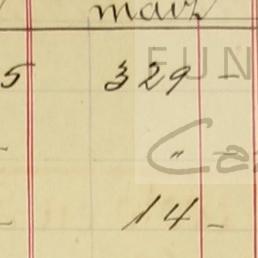 maiz
5 329 -
- " -
- 14 -
FUN
Ca